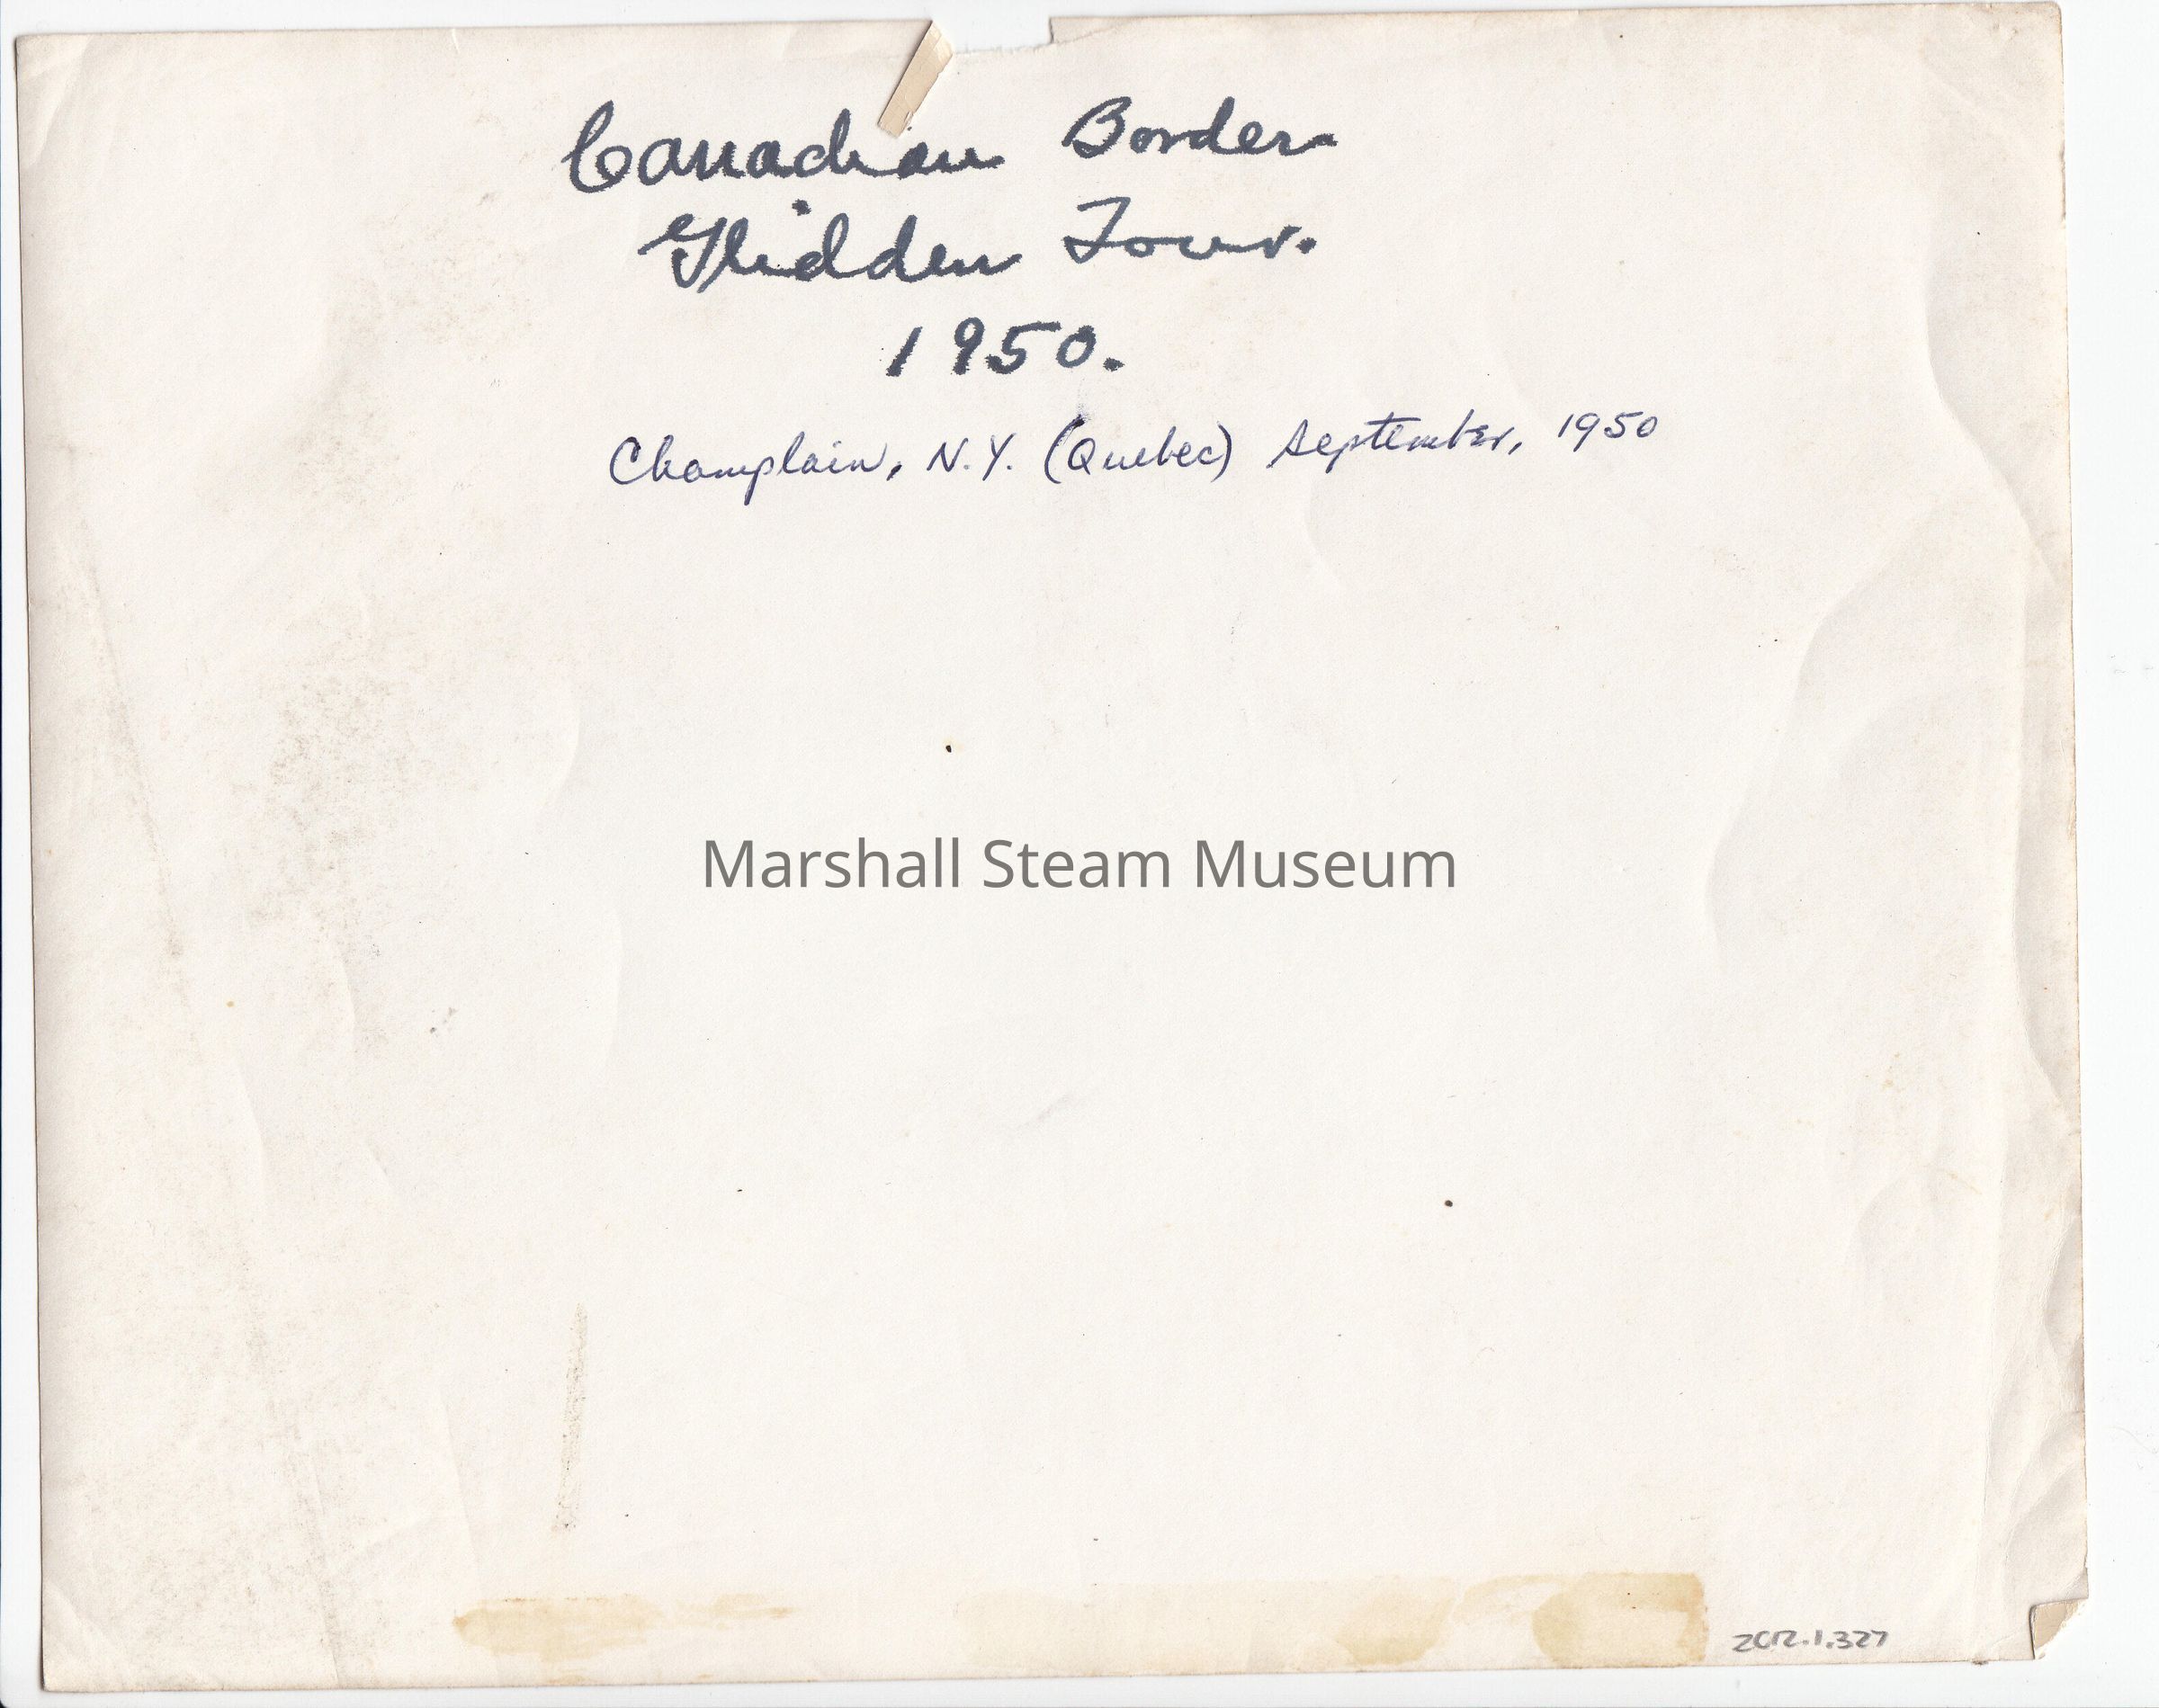 Canadian Border
Glidden Tour.
1950.
Champlain, N.Y. (Quebec) September, 1950
Marshall Steam Museum
2012.1.327